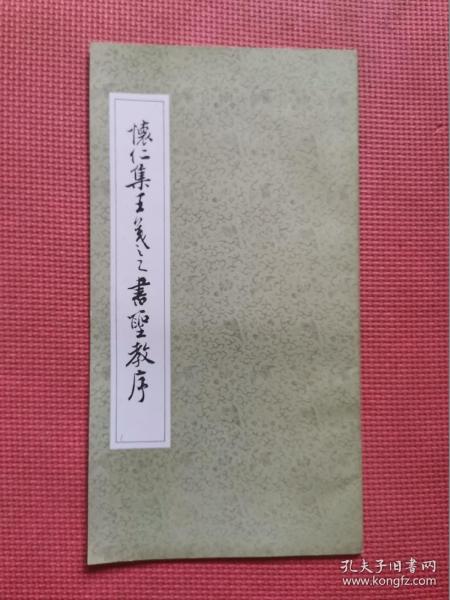 懷仁集王羲之書聖教序
孔夫子旧书网
www.kongfz.com